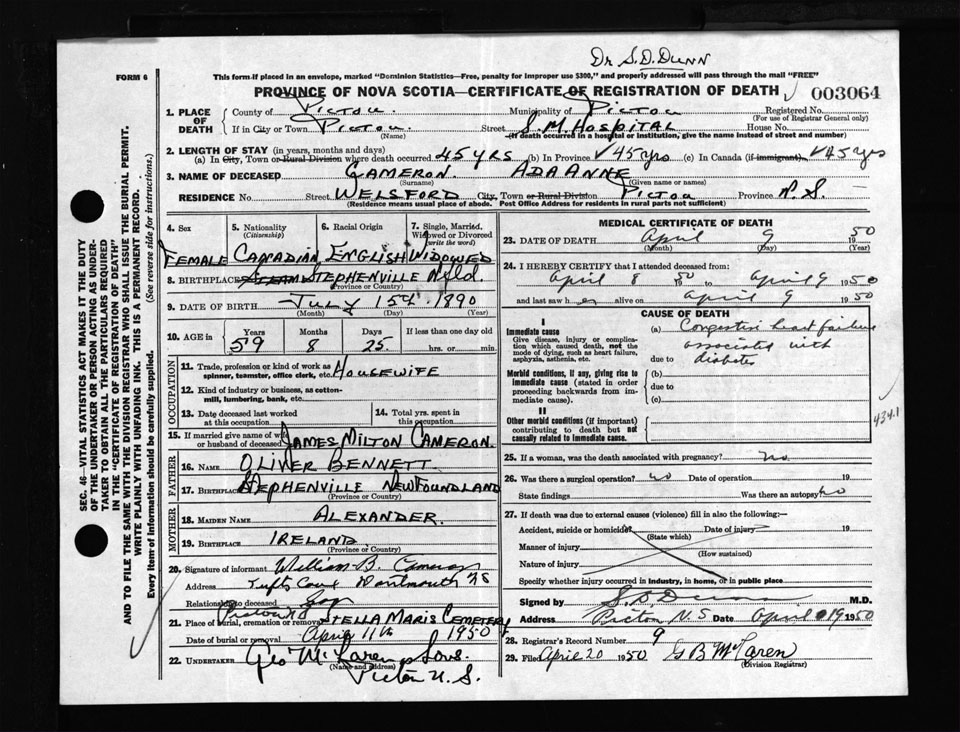 Dr S. D. DUNN
FORM 6
This form if placed in an envelope, marked "Dominion Statistics—Free, penalty for improper use $300," and properly addressed will pass through the mail "FREE"
PROVINCE OF NOVA SCOTIA—CERTIFICATE OF REGISTRATION OF DEATH 003064
1. PLACE OF DEATH County of PICTOU. Municipality of PICTOU Registered No.
(For use of Registrar General only)
If in City or Town PICTOU. Street S. M. HOSPITAL House No.
(Name) (If death occurred in a hospital or institution, give the name instead of street and number)
2. LENGTH OF STAY (in years, months and days)
(a) In City, Town or Rural Division where death occurred 45 YRS (b) In Province 45 yrs (c) In Canada (if immigrant) 45 yrs
3. NAME OF DECEASED CAMERON. ADA ANNE
(Surname) (Given name or names)
RESIDENCE No. Street WELSFORD City, Town or Rural Division PICTOU Province N.S.
(Residence means usual place of abode. Post Office Address for residents in rural parts not sufficient)
4. Sex 5. Nationality (Citizenship) 6. Racial Origin 7. Single, Married, Widowed or Divorced (write the word)
FEMALE CANADIAN ENGLISH WIDOWED
8. BIRTHPLACE STEPHENVILLE Nfld.
(Province or Country)
9. DATE OF BIRTH JULY 15th 1890
(Month) (Day) (Year)
10. AGE Years Months Days If less than one day old
59 8 25. hrs. or min.
OCCUPATION
11. Trade, profession or kind of work as spinner, teamster, office clerk, etc. HOUSEWIFE
12. Kind of industry or business, as cotton-mill, lumbering, bank, etc.
13. Date deceased last worked at this occupation 14. Total yrs. spent in this occupation
15. If married give name of wife or husband of deceased JAMES MILTON CAMERON.
FATHER
16. NAME OLIVER BENNETT.
17. BIRTHPLACE STEPHENVILLE NEWFOUNDLAND
(Province or Country)
MOTHER
18. MAIDEN NAME ALEXANDER.
19. BIRTHPLACE IRELAND.
(Province or Country)
20. Signature of informant William B. Cameron
Address Tufts Cove Dartmouth NS
Relationship to deceased Son
21. Place of burial, cremation or removal STELLA MARIS CEMETERY
Date of burial or removal April 11th 1950
22. UNDERTAKER Geo McLaren Sons.
(Name and address)
Pictou N.S.
MEDICAL CERTIFICATE OF DEATH
23. DATE OF DEATH April 9 1950
(Month) (Day) (Year)
24. I HEREBY CERTIFY that I attended deceased from:
April 8 1950 to April 9 1950
and last saw her alive on April 9 1950
CAUSE OF DEATH
I
Immediate cause
Give disease, injury or complication which caused death, not the mode of dying, such as heart failure, asphyxia, asthenia, etc.
(a) Congestive heart failure
associated with
due to diabetes
Morbid conditions, if any, giving rise to immediate cause (stated in order proceeding backwards from immediate cause).
(b)
due to
(c)
II
Other morbid conditions (if important) contributing to death but not causally related to immediate cause.
434.1
25. If a woman, was the death associated with pregnancy? no
26. Was there a surgical operation? no Date of operation 19
State findings Was there an autopsy no
27. If death was due to external causes (violence) fill in also the following:—
Accident, suicide or homicide Date of injury 19
(State which)
Manner of injury
(How sustained)
Nature of injury
Specify whether injury occurred in industry, in home, or in public place
Signed by S D Dunn M.D.
Address Pictou N.S Date April 19 1950
28. Registrar's Record Number 9
29. Filed April 20 1950 G B McLaren
(Division Registrar)
SEC. 46—VITAL STATISTICS ACT MAKES IT THE DUTY
OF THE UNDERTAKER OR PERSON ACTING AS UNDER-
TAKER TO OBTAIN ALL THE PARTICULARS REQUIRED
IN THE "CERTIFICATE OF REGISTRATION OF DEATH"
AND TO FILE THE SAME WITH THE DIVISION REGISTRAR WHO SHALL ISSUE THE BURIAL PERMIT.
WRITE PLAINLY WITH UNFADING INK. THIS IS A PERMANENT RECORD.
Every item of information should be carefully supplied. (See reverse side for instructions.)